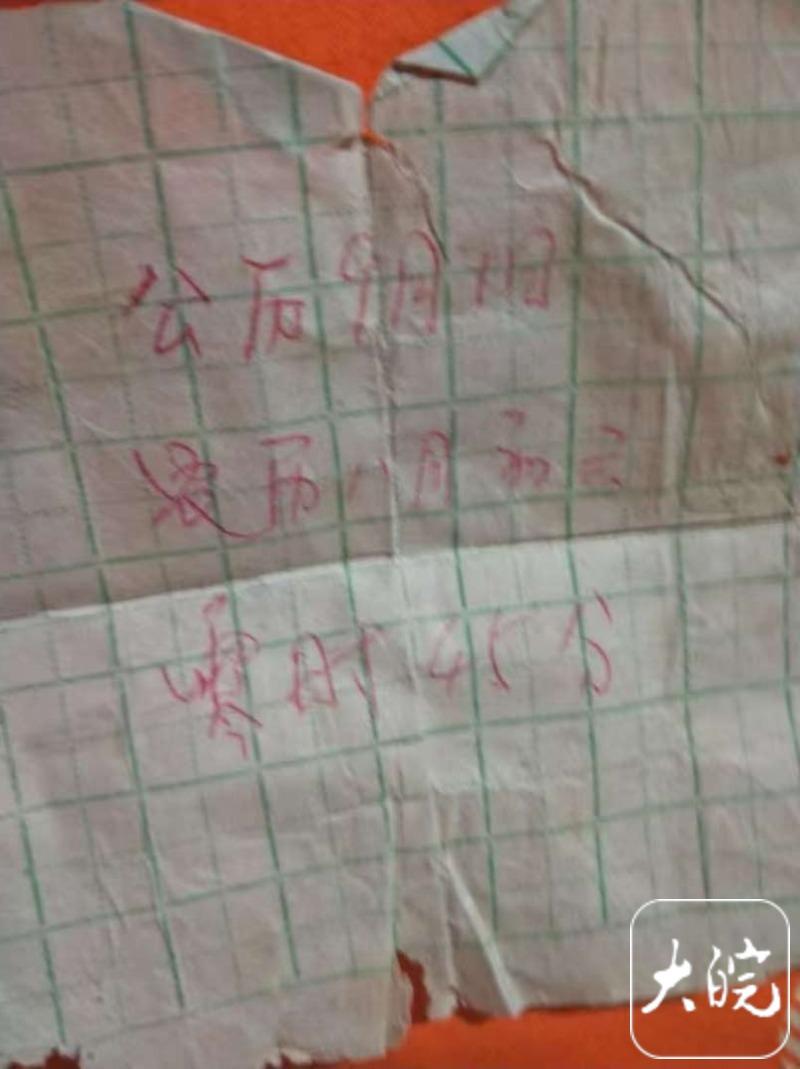 公历9月11日
农历八月初三
零时45分
大皖